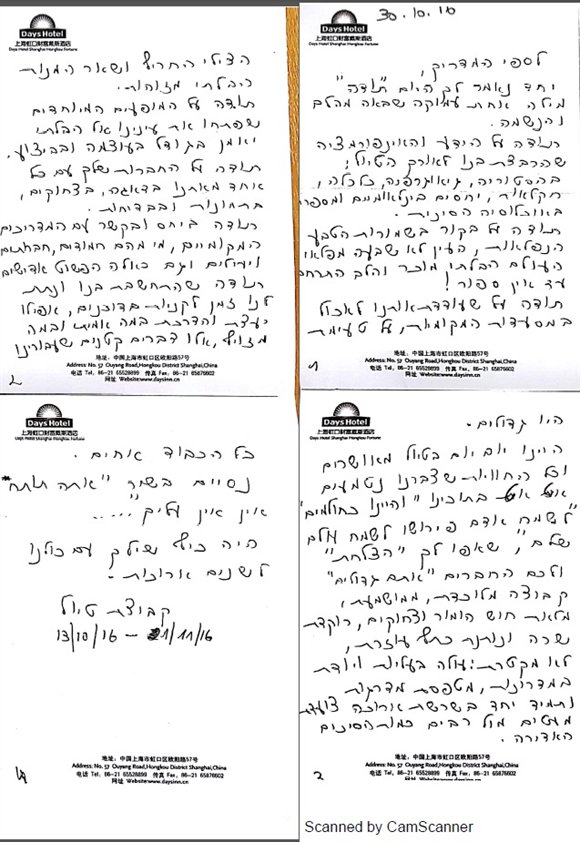 Days Hotel
上海虹口财富戴斯酒店
Days Hotel Shanghai Hongkou Fortune
30.10.16
לספי המדריך,
יחד נאמר לך היום "תודה"
מילה אחת עמוקה שבאה מהלב
והנשמה.
תודה על הידע והאינפורמציה
שהרבצת בנו לאורך הטיול;
בהסטוריה, גיאוגרפיה, כלכלה,
חקלאות, יחסים בינלאומיים ומספר
באוכלוסיה הסינית.
תודה על בקור בשמורות הטבע
הנפלאות, העין לא שבעה מפלאי
העולם הבלתי מוכר והלב התרחב
עד אין ספור!
תודה על שעודדת אותנו לאכול
במסעדות המקומיות, על טעימת
地址：中国上海市虹口区欧阳路57号
Address: No. 57 Ouyang Road,Hongkou District Shanghai,China
电话 Tel．86—21 65528899 传真 Fax．86—21 65876602
网址 Website:www.daysinn.cn
1
Days Hotel
上海虹口财富戴斯酒店
Days Hotel Shanghai Hongkou Fortune
הצ'ילי החריף ושאר המנות
הבלתי מזוהות.
תודה על המופעים המיוחדים
שפתחו את עינינו אל הבלתי
יאומן בגודל בעוצמה ובביצוע.
תודה על החברות שלך עם כל
אחד מאתנו בדאגה, בצחוקים,
בתחנות ובבדיחות.
תודה ביחס ובקשר עם המדריכים
המקומיים, מי מהם חמודים, חברתיים
ויעילים וגם כאלה הפשוט אדישים
תודה שהתחשבת בנו ונתת
לנו זמן לקניות בדוכנים, אפילו
יעצת והדרכת במה אמיתי ובמה
מזויף, אלו דברים קטנים שעבורינו
地址：中国上海市虹口区欧阳路57号
Address: No. 57 Ouyang Road,Hongkou District Shanghai,China
电话 Tel．86—21 65528899 传真 Fax．86—21 65876602
网址 Website:www.daysinn.cn
2
Days Hotel
上海虹口财富戴斯酒店
Days Hotel Shanghai Hongkou Fortune
היו גדולים.
היינו יום יום בטיול מאושרים
וכל החוויות שצברנו נטמעים
בתוכינו "והיינו כחולמים"
"לשמח אדם פירושו לשמח עולם
שלם", שאפו לך "הצלחת"
ולכם החברים "אתם גדולים"
קבוצה מלוכדת, ממושמעת,
מלאת חוש הומור וצחוקים, רוקדת
שרה ונותנת כתף עוזרת,
לא מקטרת! עולה בעליות ויורדת
במדרונות, מטפסת מדרגות
ותמיד יחד בשרשרת ארוכה צועדת
מעטים מול רבים כמות הסינים
האדירה.
地址：中国上海市虹口区欧阳路57号
Address: No. 57 Ouyang Road,Hongkou District Shanghai,China
电话 Tel．86—21 65528899 传真 Fax．86—21 65876602
网址 Website:www.daysinn.cn
Days Hotel
上海虹口财富戴斯酒店
Days Hotel Shanghai Hongkou Fortune
כל הכבוד אחים.
נסיים בשיר "אתה תותח"
אין אין עליך".....
היה כיף שילך עם כולנו
לשנים ארוכות.
קבוצת טיול
13/10/16 – 1/11/16
地址：中国上海市虹口区欧阳路57号
Address: No. 57 Ouyang Road,Hongkou District Shanghai,China
电话 Tel．86—21 65528899 传真 Fax．86—21 65876602
网址 Website:www.daysinn.cn
Scanned by CamScanner